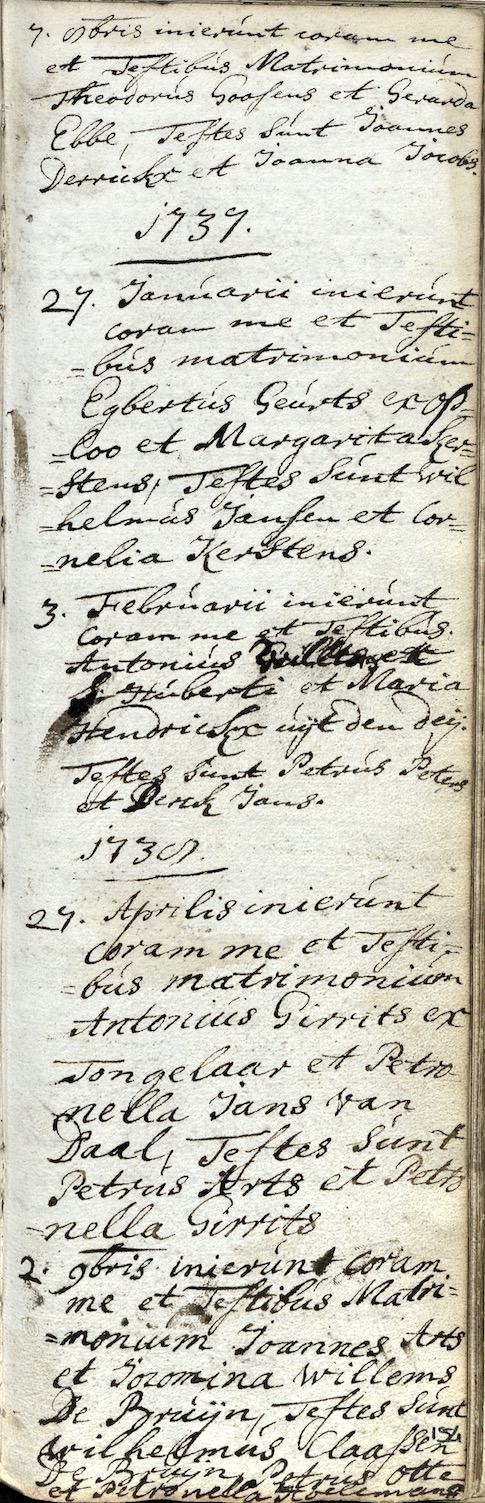 7. 9bris inierunt coram me
et Testibus Matrimonium
Theodorus Goossens et Gerarda
Ebbe, Testes sunt Joannes
Derrickx et Joanna Jacobs.
1737.
27. Januarii inierunt
coram me et Testi=
=bus matrimonium
Egbertus Geurts ex Op=
=loo et Margarita Ker=
=stens, Testes sunt Wil
=helmus Jansen et Cor=
=nelia Kerstens.
3. Februarii inierunt
coram me et Testibus.
Antonius et
Huberti et Maria
Hendrickx uijt den deij.
Testes sunt Petrus Peters
et Derck Jans.
1738.
27. Aprilis inierunt
coram me et Testi=
=bus matrimonium
Antonius Girrits ex
Tongelaar et Petro
nella Jans van
Daal, Testes sunt
Petrus Arts et Petro
nella Girrits
2. 9bris inierunt coram
me et Testibus Matri=
=monium Joannes Arts
et Jacomina Willems
De Bruijn, Testes sunt
Wilhelmus Claassen
De Bruijn, Petrus Otte
et Petronella